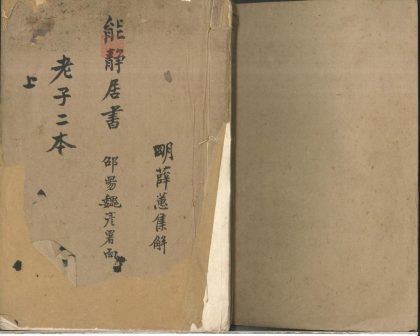 明薛蕙集解
能靜居書
邵昜魏彦署面
老子二本
上